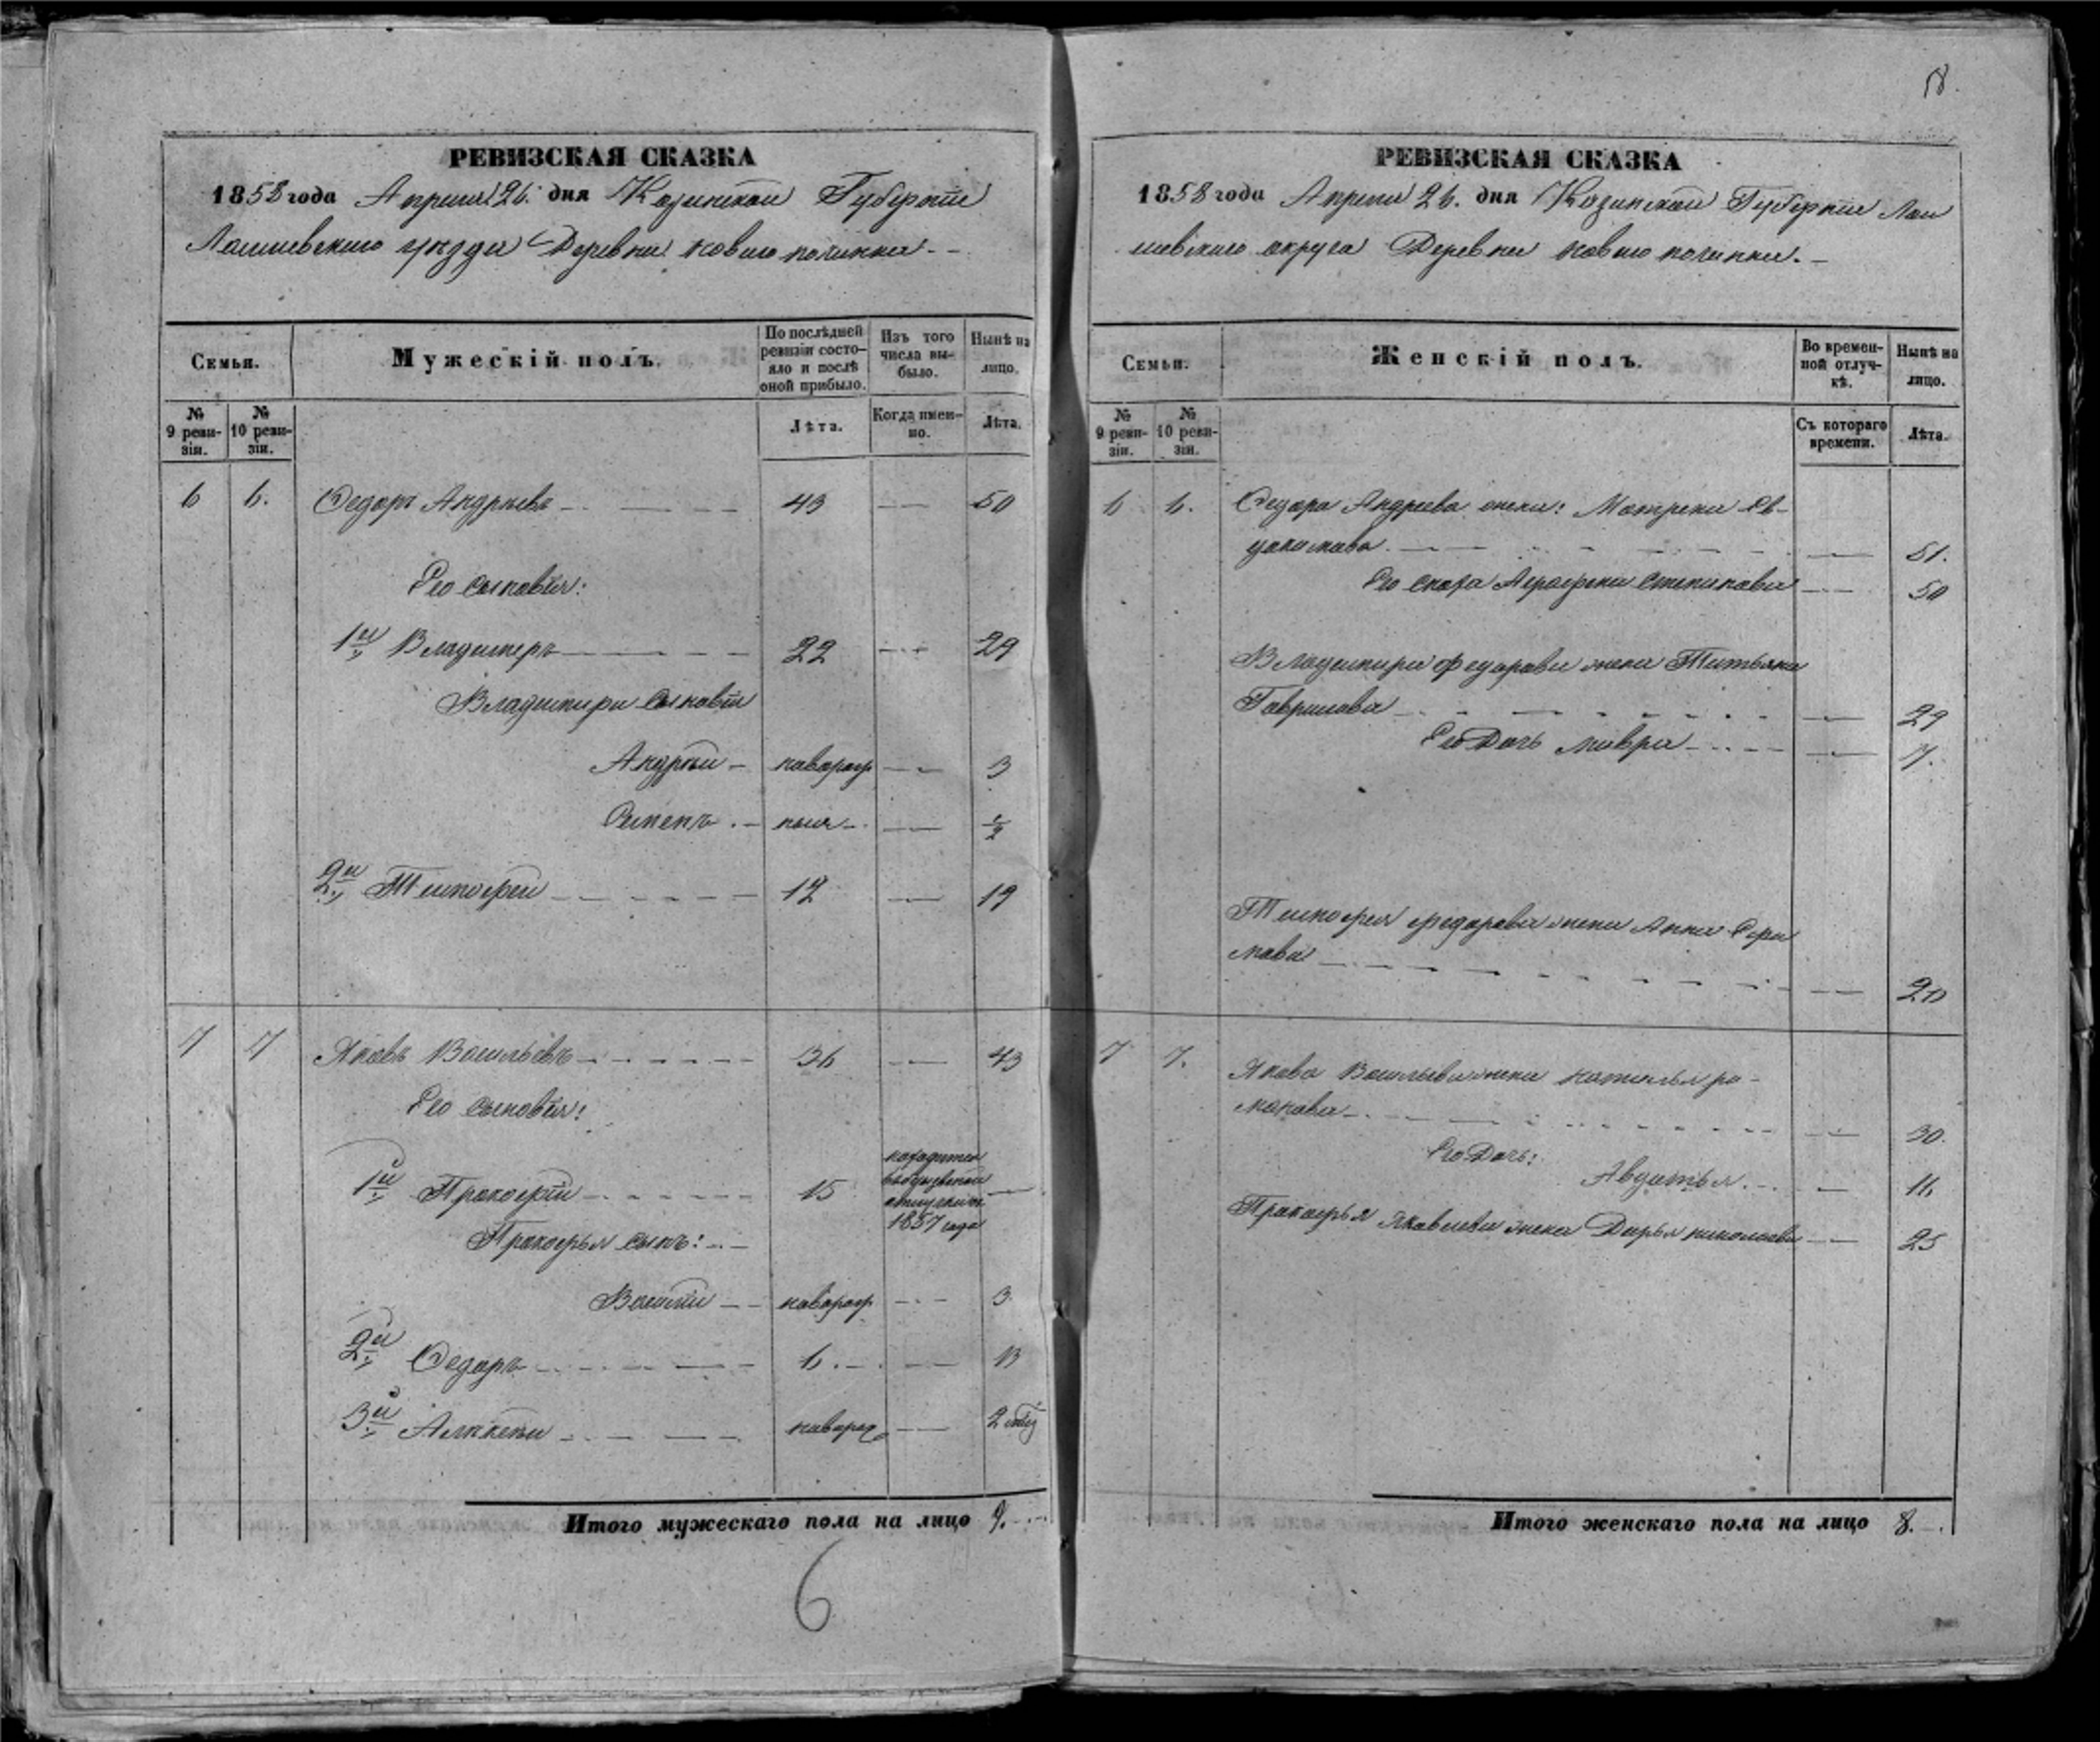 РЕВИЗСКАЯ СКАЗКА
1858 года Апреля 26. дня Казанской Губернiи
Лаишевскаго уѣзда Деревни Новаго починка. -
Семьи.
Мужескiй полъ.
По послѣдней ревизiи состо-яло и послѣ оной прибыло.
Изъ того числа вы-было.
Нынѣ на лицо.
№ 9 реви-зiи.
№ 10 реви-зiи.
Лѣта.
Когда имен-но.
Лѣта.
6 6. Ѳедоръ Андрѣевъ 43 — 50
Его сыновья:
1й Владимеръ 22 — 29
Владимира сыновья
Андрѣй - наворож — 3
Семенъ - ныя - — 1/2
2й Тимофей 12 — 19
7 7 Яковъ Васильевъ 36 — 43
Его сыновья:
1й Прокофiй 15
находится
въ безъвѣстной
отлучкѣ съ
1857 года —
Прокофья сынъ:
Василiй наворож — 3
2й Ѳедоръ 6. — 13
3й Алексѣй наворож —
Итого мужескаго пола на лицо 9.
6
18.
РЕВИЗСКАЯ СКАЗКА
1858 года Апреля 26. дня Казанской Губернiи Лаи
шевскаго округа Деревни Новаго починка. -
Семьи.
Женскiй полъ.
Во времен-ной отлуч-кѣ.
Нынѣ на лицо.
№ 9 реви-зiи.
№ 10 реви-зiи.
Съ котораго времени.
Лѣта.
6 6. Ѳедора Андреева жена: Матрена Ев-
докимова — 51.
Его сноха Аграфена Степанова — 50
Владимира Федорова жена Татьяна
Гаврилова — 29
Его Дочь Мавра — 7.
Тимофея Федорова жена Анна Ефи
мова — 20
7 7. Якова Васильева жена Наталья ро-
манова — 30.
Его Дочь:
Авдотья — 11.
Прокофья Яковлева жена Дарья николаева — 25
Итого женскаго пола на лицо 8.